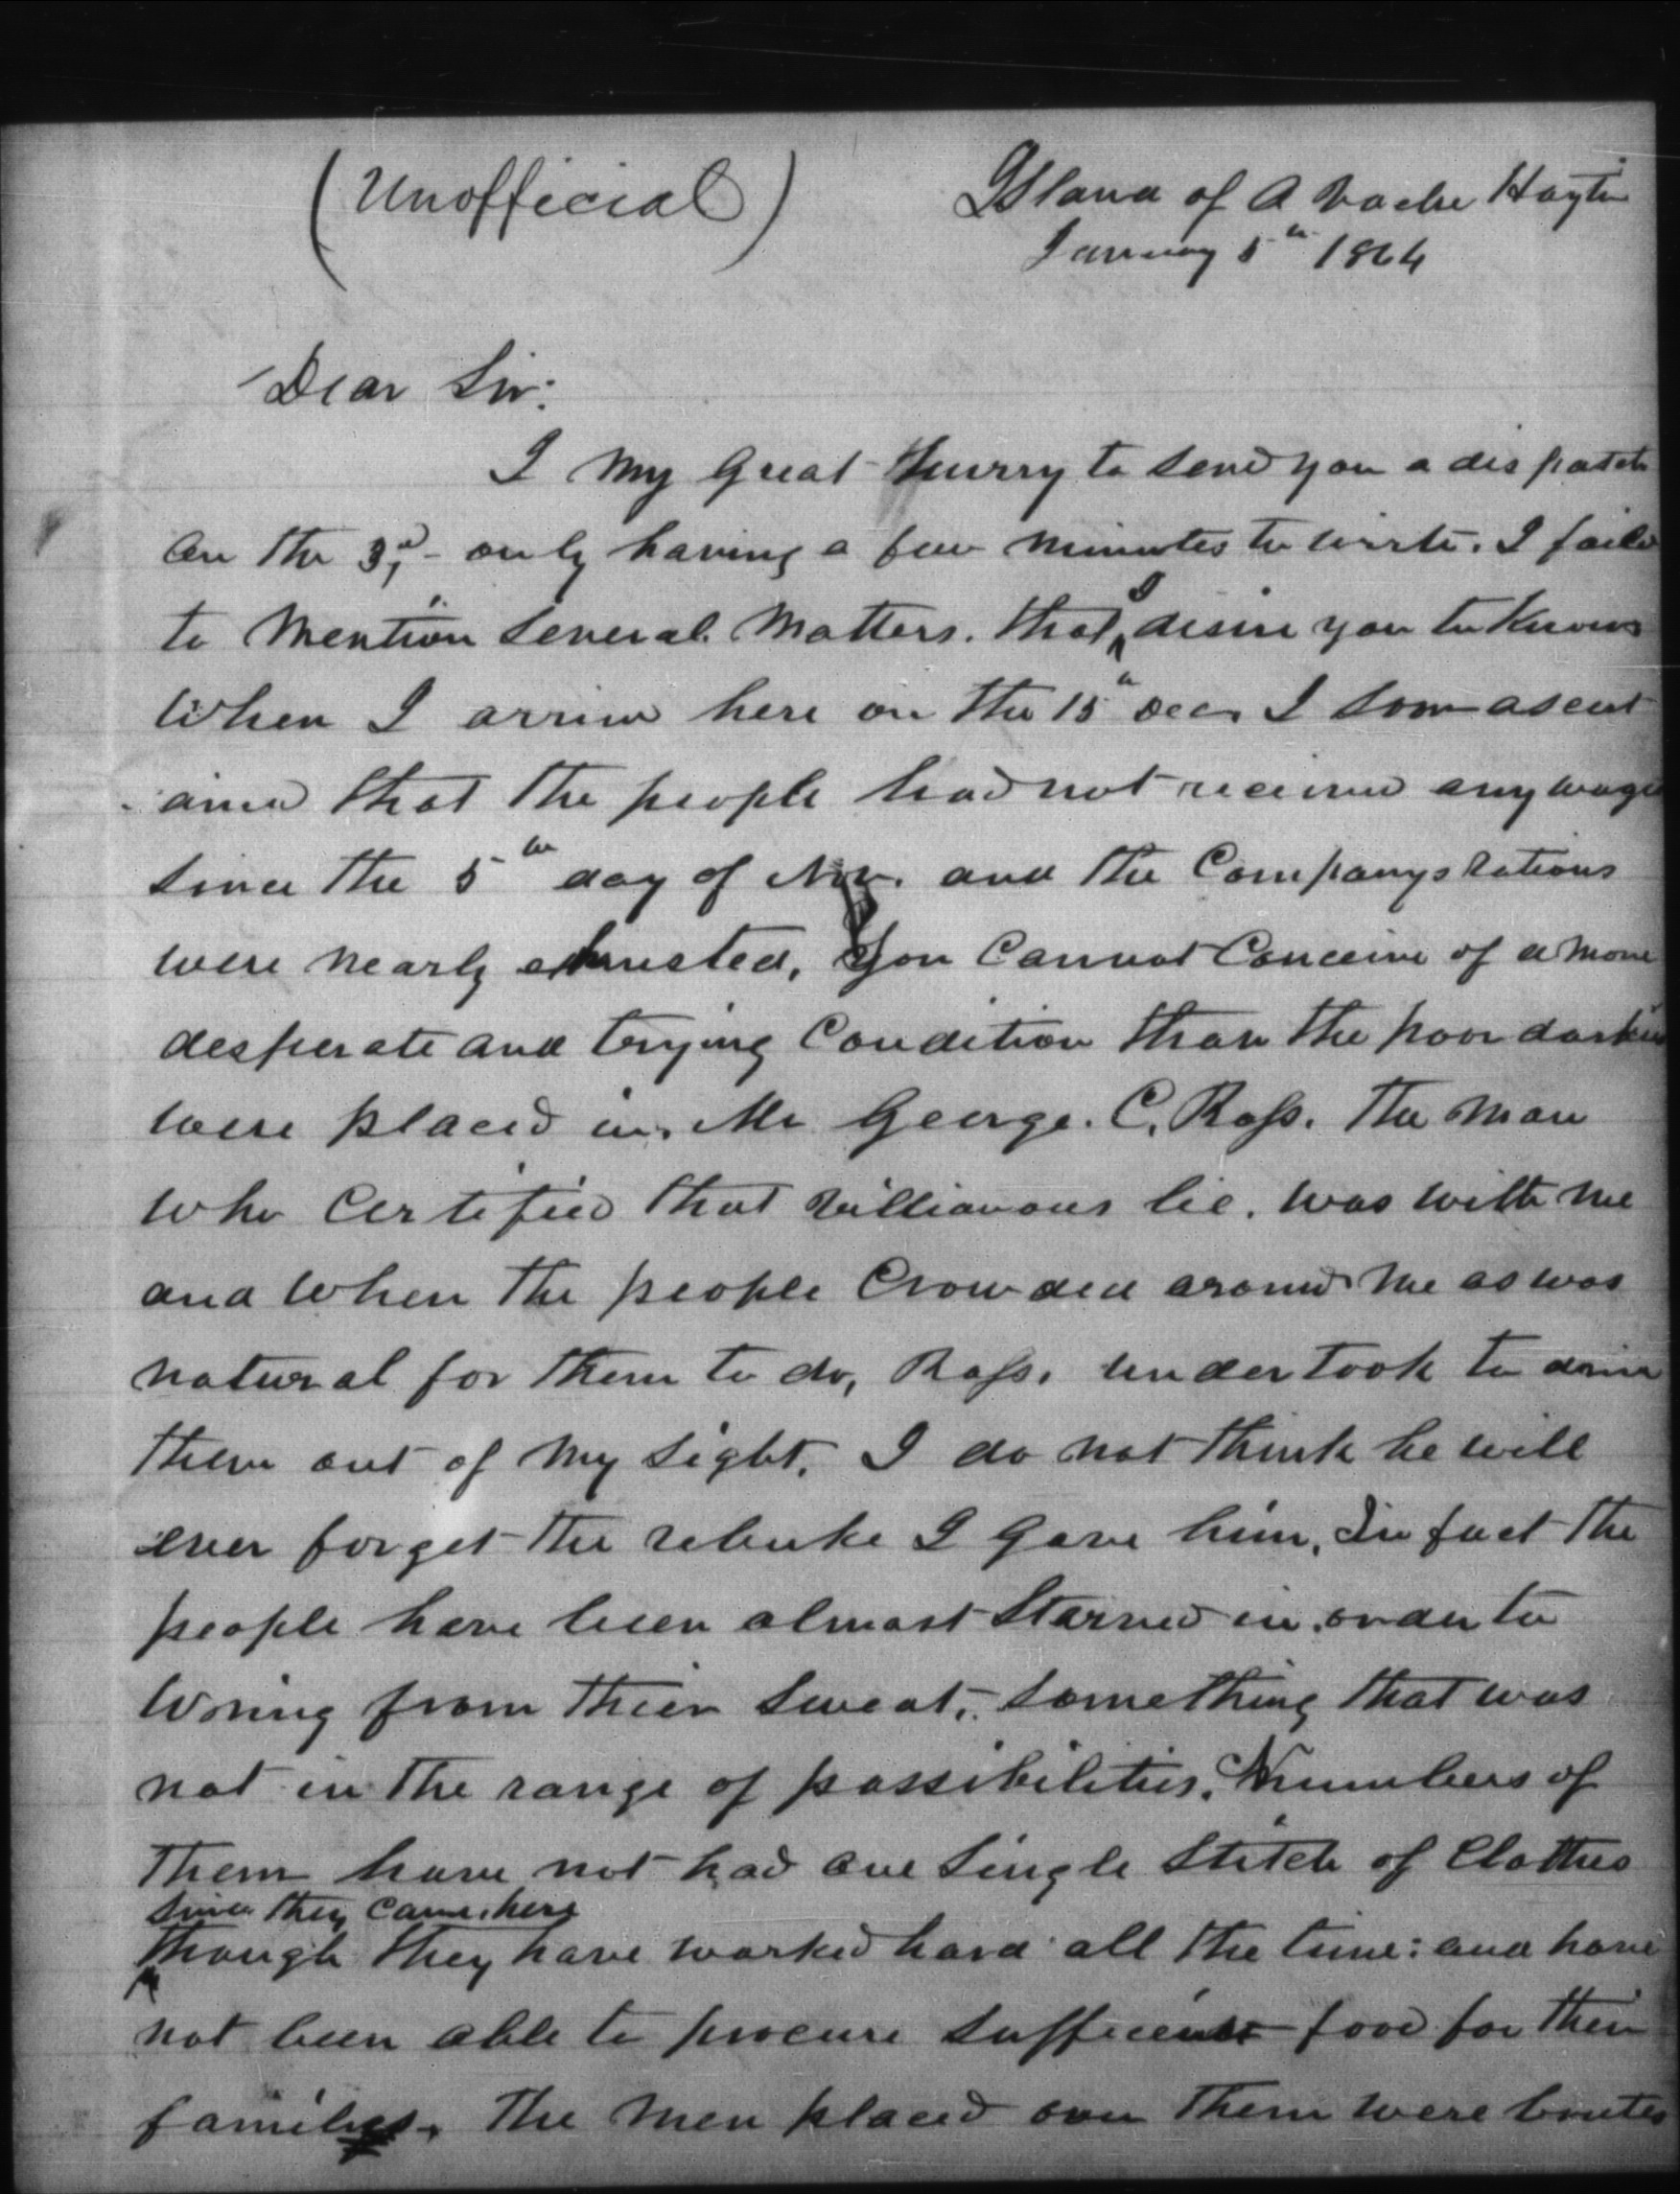 (Unofficial)
Island of A Vache Hayti
January 5th 1864
Dear Sir:
I my great hurry to send you a dispatch
on the 3d, only having a few minutes to write. I failed
to mention several matters. that I desire you to know
When I arrived here on the 15th Dec, I soon ascert
ained that the people had not received any wages
since the 5th day of Nov. and the Companys rations
were nearly exhusted, You cannot conceive of a more
desperate and trying condition than the poor darkies
were placed in, Mr George. C, Ross. the man
who certified that villianous lie. was with me
and when the people crowded around me as was
natural for them to do, Ross, undertook to drive
them out of my sight. I do not think he will
ever forget the rebuke I gave him, In fact the
people have been almost starved in order to
wring from thier sweat, something that was
not in the range of possibilities, Numbers of
them have not had one single stitch of clothes
since they came here
though they have worked hard all the time: and have
not been able to procure sufficient food for their
families. The men placed over them were brutes